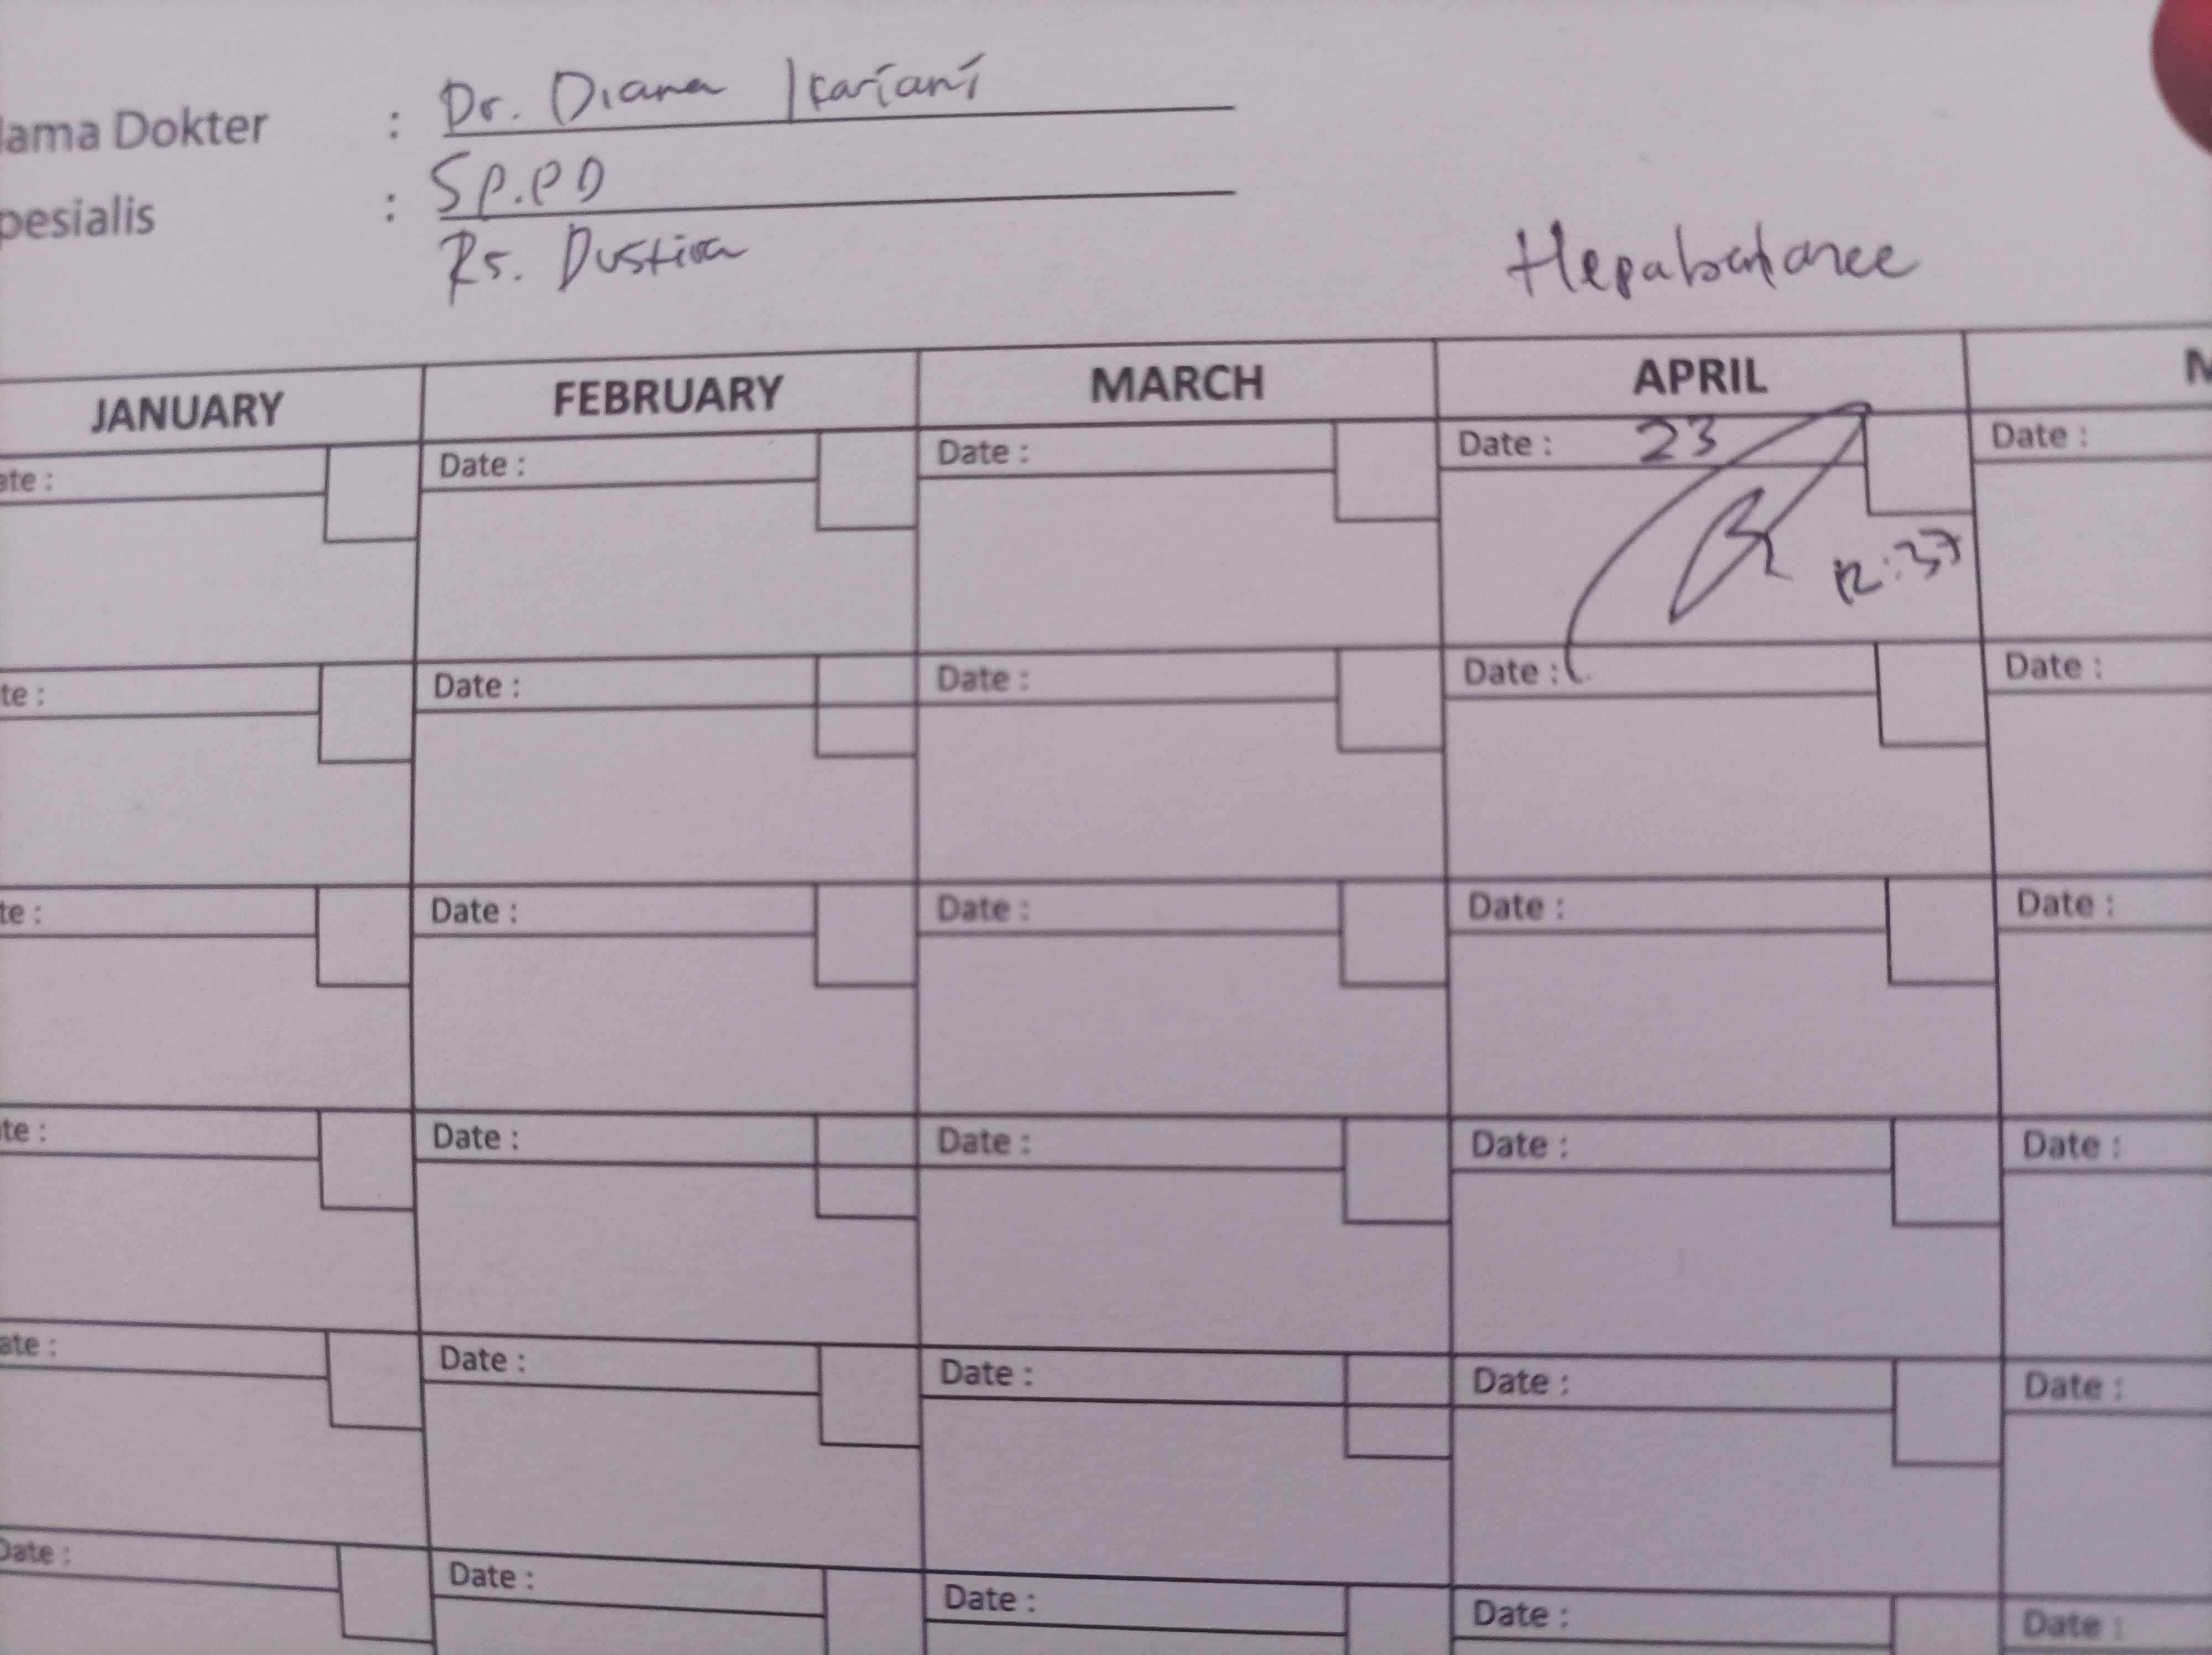 ama Dokter : Dr. Diana Ikariani
pesialis : Sp.PD
Rs. Dustira
Hepabalance
JANUARY FEBRUARY MARCH APRIL M
ate : Date : Date : Date : 23 Date :
12:37
te : Date : Date : Date : Date :
te : Date : Date : Date : Date :
te : Date : Date : Date : Date :
ate : Date : Date : Date : Date :
Date : Date : Date : Date : Date :